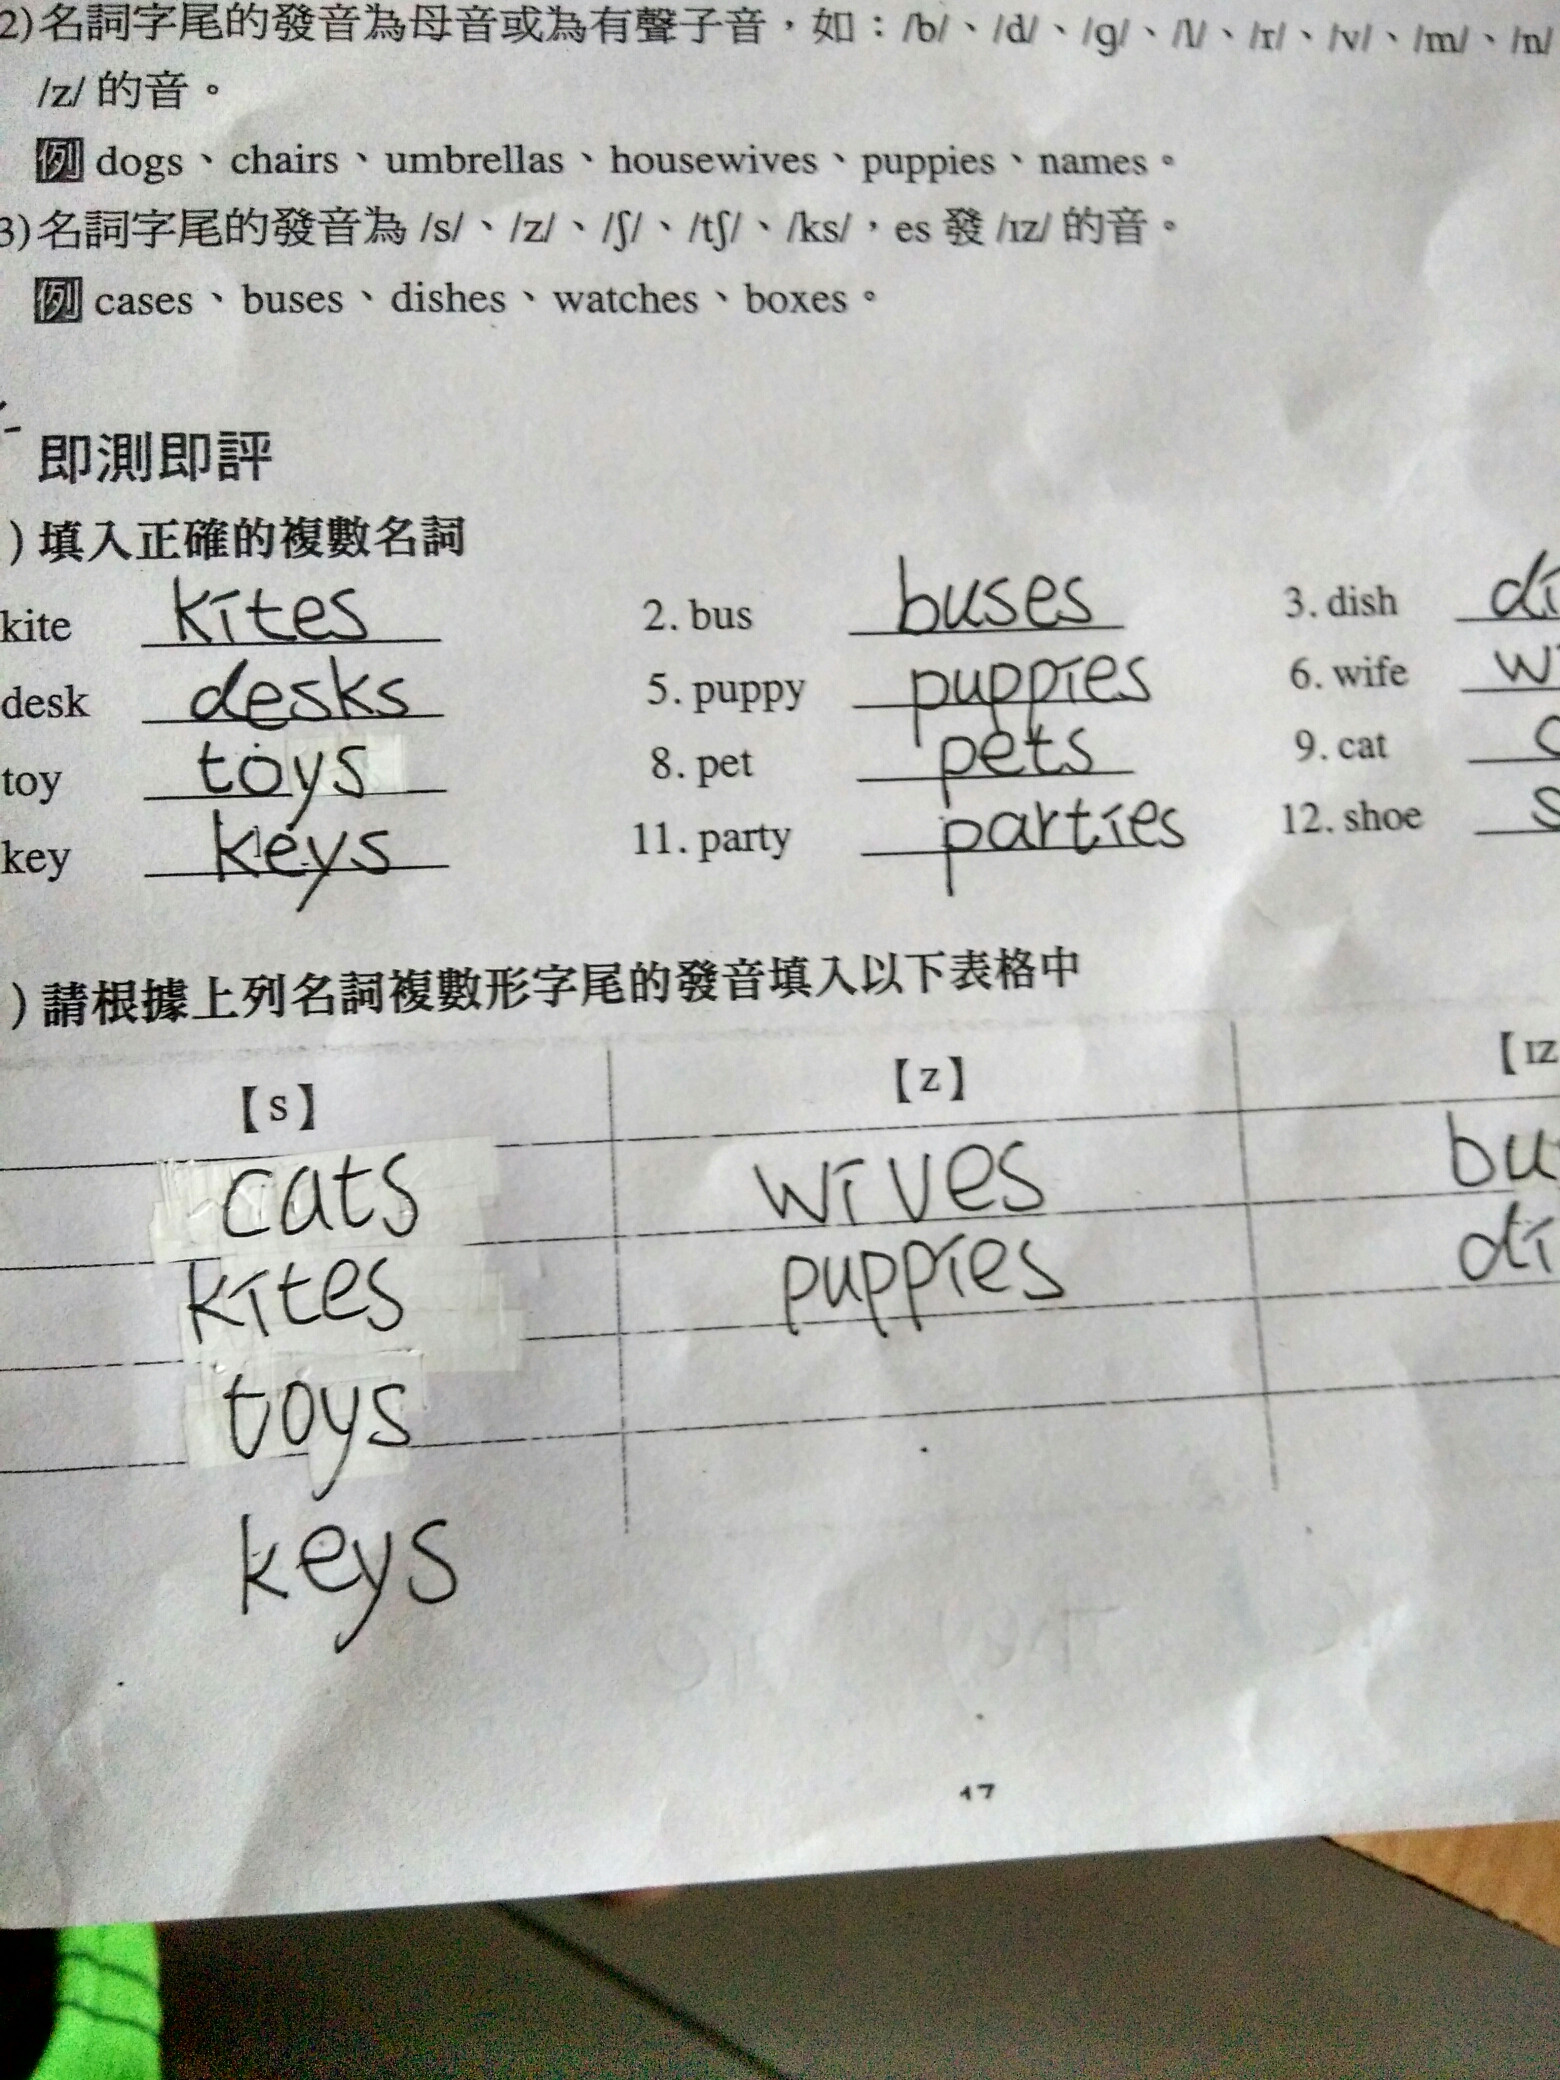 2)名詞字尾的發音為母音或為有聲子音，如：/b/、/d/、/g/、/l/、/ɪ/、/v/、/m/、/n/
/z/ 的音。
例 dogs、chairs、umbrellas、housewives、puppies、names。
3)名詞字尾的發音為 /s/、/z/、/ʃ/、/tʃ/、/ks/，es 發 /ɪz/ 的音。
例 cases、buses、dishes、watches、boxes。
即測即評
)填入正確的複數名詞
kite kites 2. bus buses 3. dish di
desk desks 5. puppy puppies 6. wife wi
toy toys 8. pet pets 9. cat c
key keys 11. party parties 12. shoe s
)請根據上列名詞複數形字尾的發音填入以下表格中
【s】 【z】 【ɪz
cats wives bu
kites puppies di
toys
keys
17